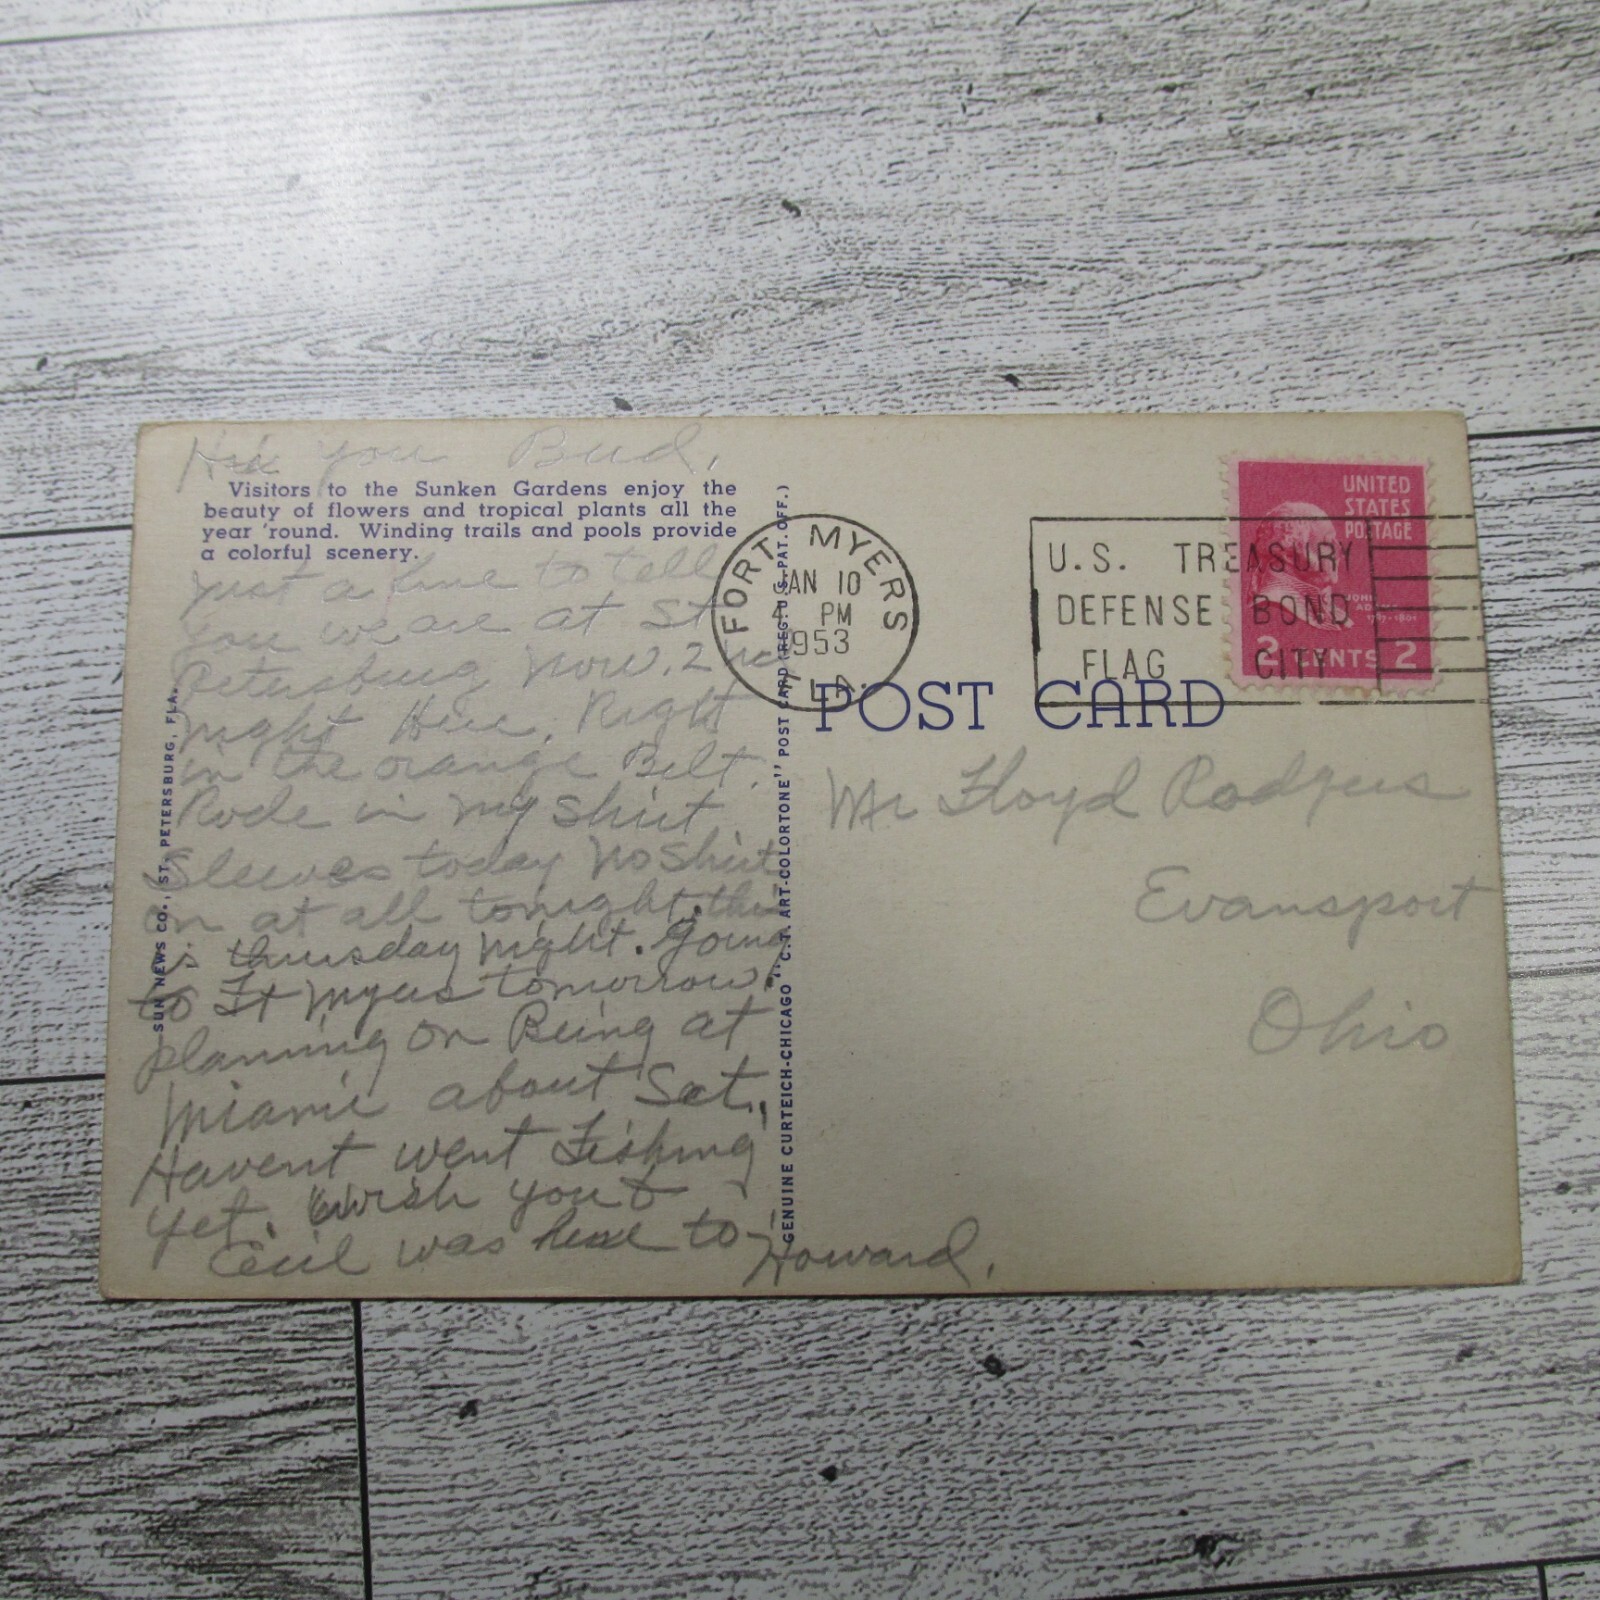 Hii you Bud,
Visitors to the Sunken Gardens enjoy the
beauty of flowers and tropical plants all the
year 'round. Winding trails and pools provide
a colorful scenery.
just a line to tell
you we are at St
Petersburg now. 2nd
night Here. Right
in the orange Belt.
Rode in my shirt
Sleeves today no shirt
on at all tonight. this
is thursday night. going
to Ft Myers tomorrow.
planning on Being at
Miami about Sat.,
Havent went Fishing
yet. wish you &
Cecil was here to
Howard.
SUN NEWS CO., ST. PETERSBURG, FLA.
GENUINE CURTEICH-CHICAGO "C.T. ART-COLORTONE" POST CARD (REG. U.S. PAT. OFF.)
FORT MYERS
JAN 10
4 PM
1953
FLA.
U.S. TREASURY
DEFENSE BOND
FLAG CITY
UNITED
STATES
POSTAGE
JOHN
ADAMS
1797-1801
2 CENTS 2
POST CARD
Mr Floyd Rodgers
Evansport
Ohio